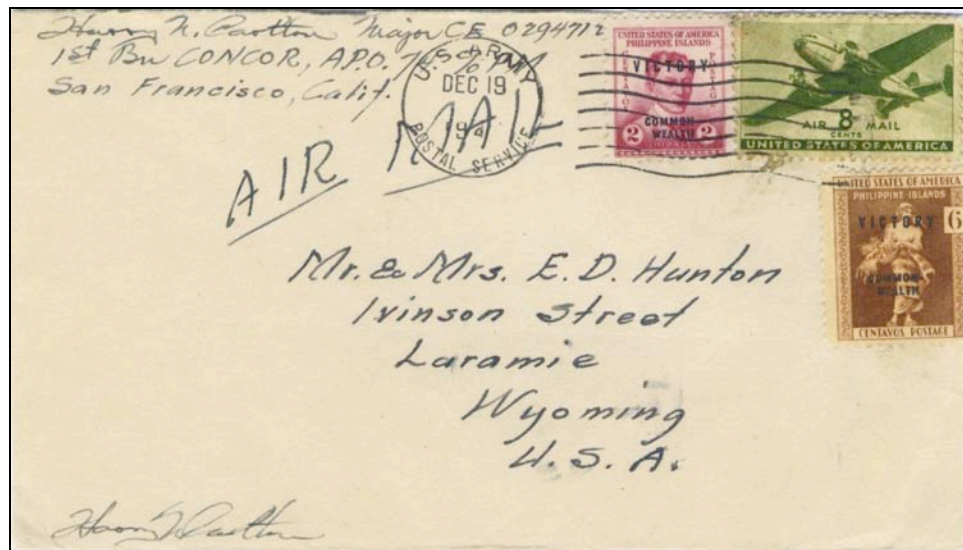 Harry N. Major CE 0294712
1st Bn CONCOR, A.P.O.
San Francisco, Calif.
U.S. ARMY
DEC 19
POSTAL SERVICE
AIR MAIL
UNITED STATES OF AMERICA
PHILIPPINE ISLANDS
VICTORY
COMMON-
WEALTH
2 2
8
AIR MAIL
CENTS
UNITED STATES OF AMERICA
UNITED STATES OF AMERICA
PHILIPPINE ISLANDS
VICTORY 6
COMMON-
WEALTH
CENTAVOS POSTAGE
Mr. & Mrs. E. D. Hunton
Ivinson Street
Laramie
Wyoming
U. S. A.
Harry